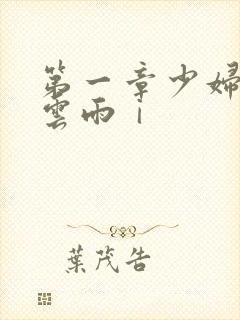 第一章少婦
雲雨｜
葉茂告